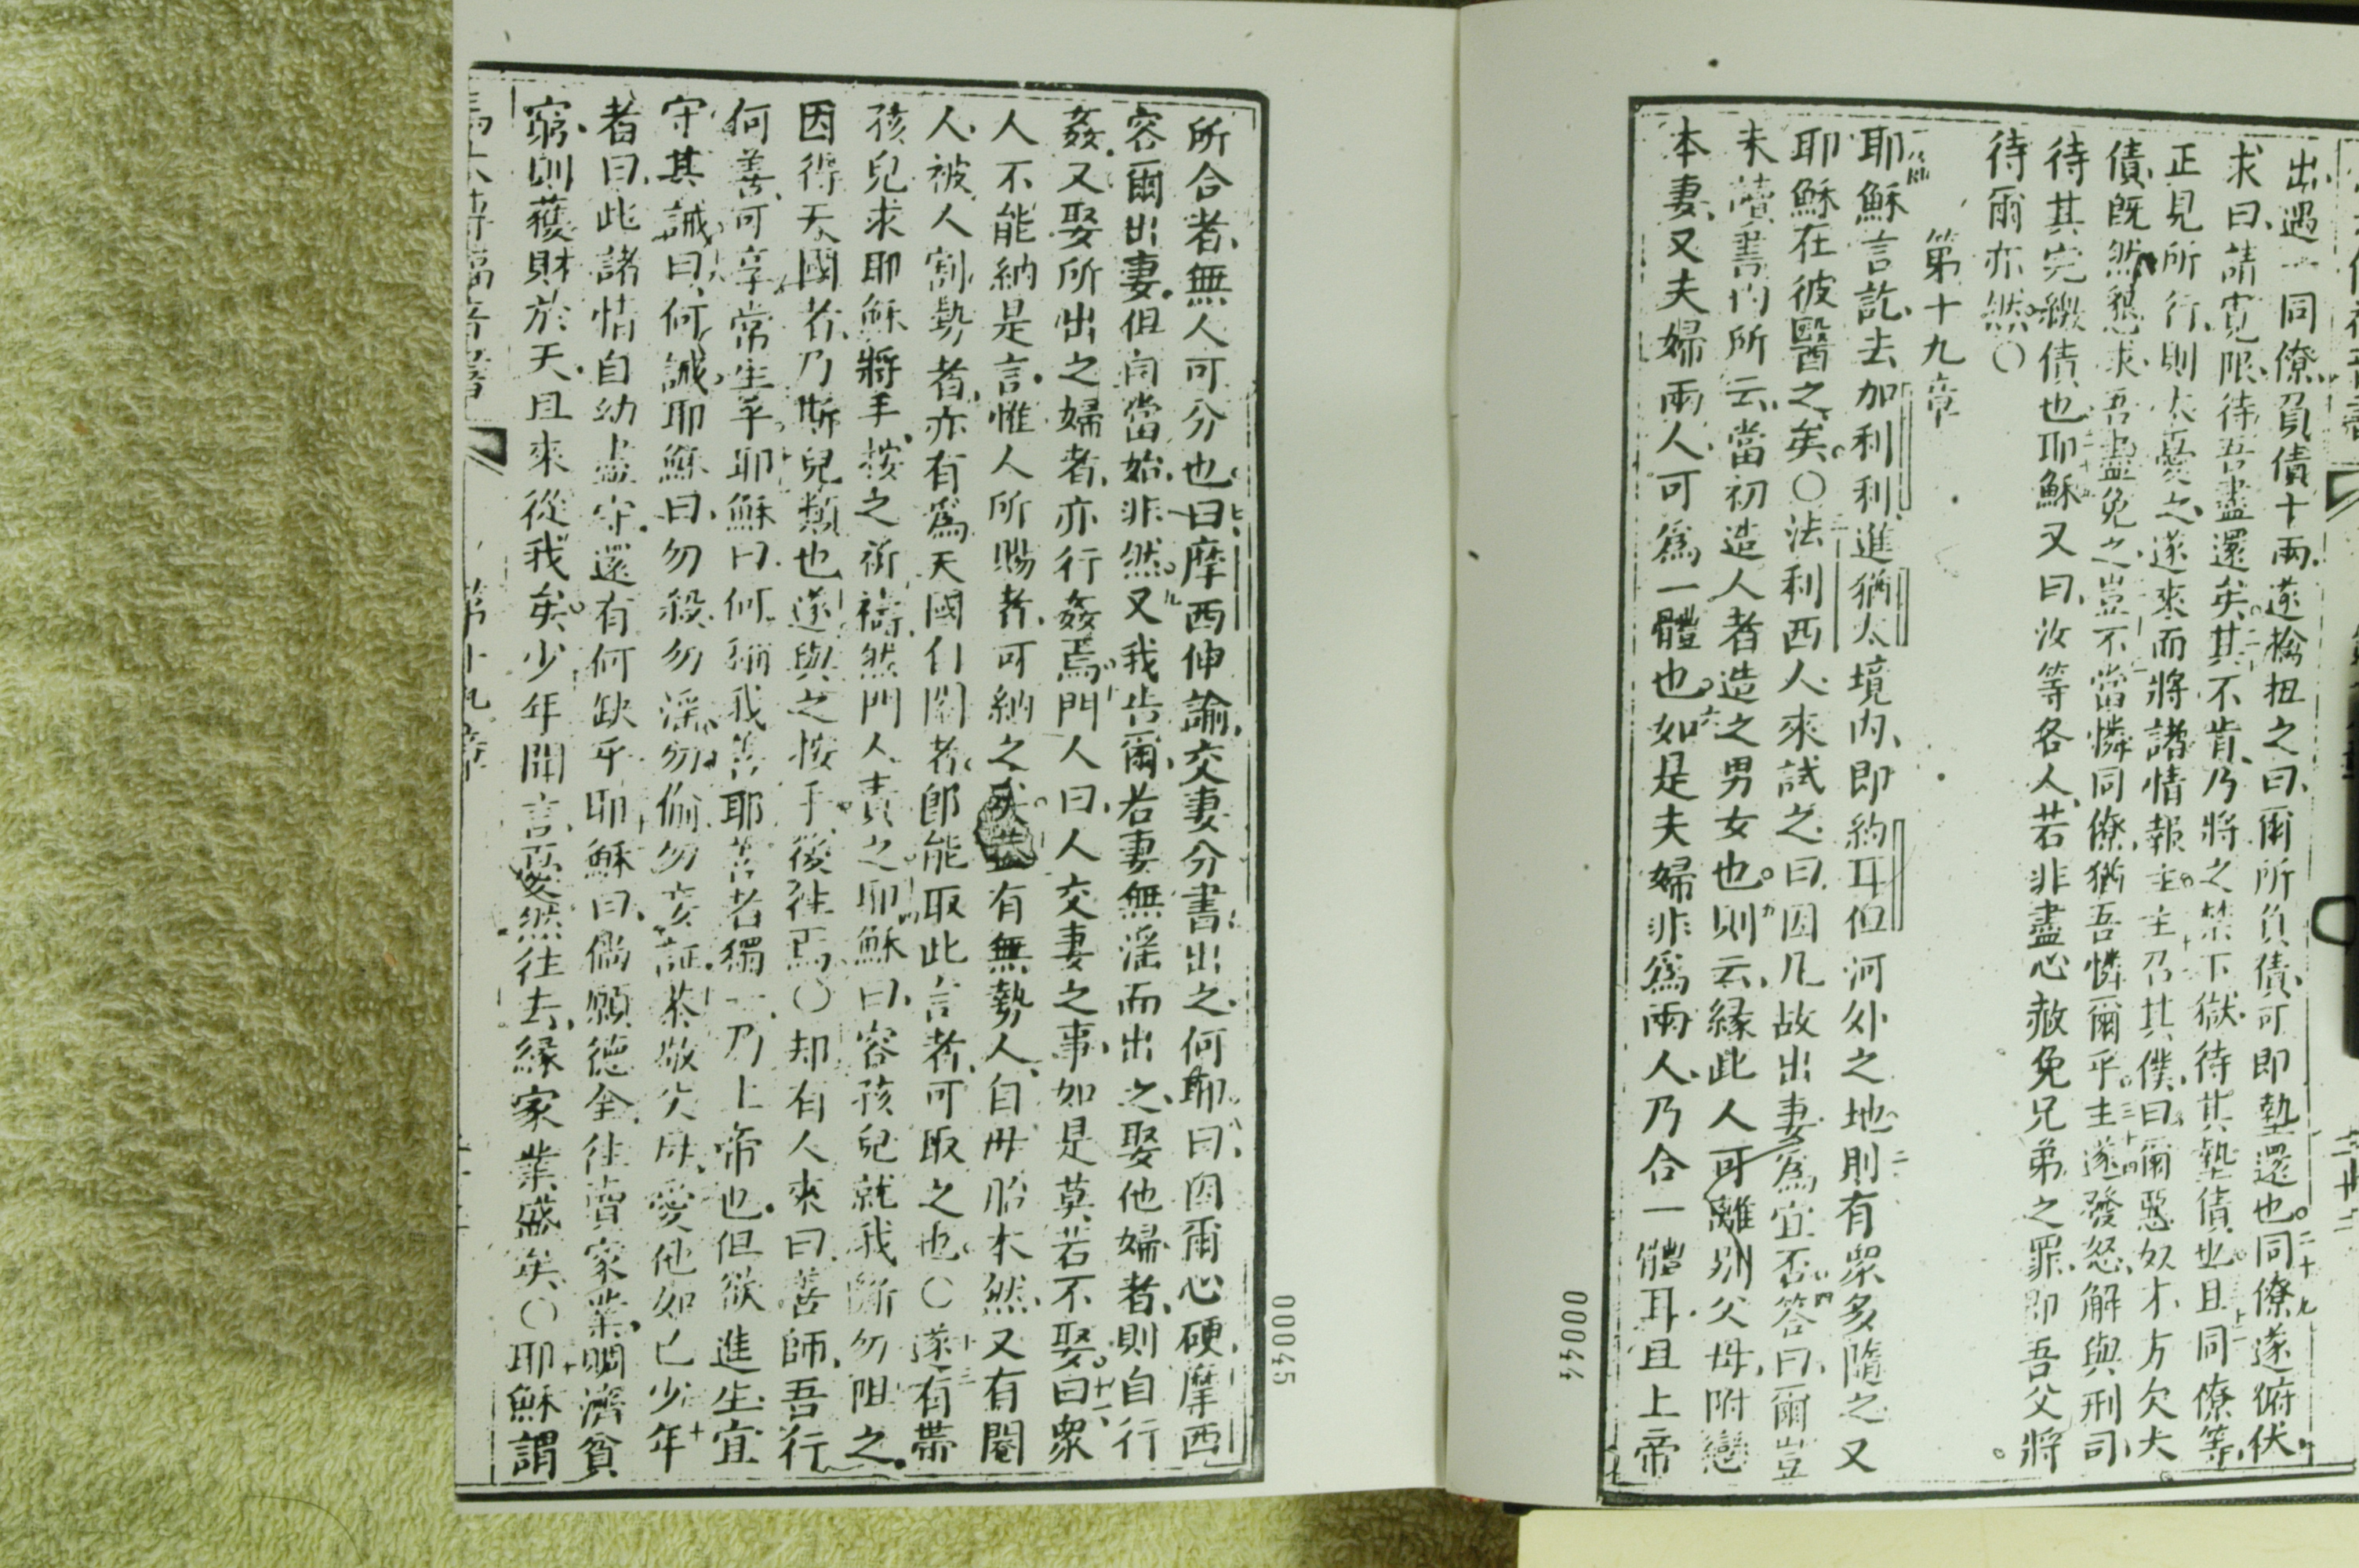 出遇一同僚負債十兩遂擒扭之曰爾所負債可即墊還也同僚遂俯伏
求曰請寬限待吾盡還矣其不肯乃將之禁下獄待其墊債也且同僚等
正見所行則大憂之遂來而將諸情報主主召其僕曰爾惡奴才方欠大
債既然懇求吾盡免之豈不當憐同僚猶吾憐爾乎主遂發怒解與刑司
待其完繳債也耶穌又曰汝等各人若非盡心赦免兄弟之罪即吾父將
待爾亦然○
第十九章
耶穌言訖去加利利進猶太境內即約耳但河外之地則有眾多隨之又
耶穌在彼醫之矣○法利西人來試之曰因凡故出妻為宜否答曰爾豈
未讀書內所云當初造人者造之男女也則云緣此人可離別父母附戀
本妻又夫婦兩人可為一體也如是夫婦非為兩人乃合一體耳且上帝
00044
所合者無人可分也曰摩西伸諭交妻分書出之何耶曰因爾心硬摩西
容爾出妻但向當始非然又我告爾若妻無淫而出之娶他婦者則自行
姦又娶所出之婦者亦行姦焉門人曰人交妻之事如是莫若不娶曰眾
人不能納是言惟人所賜者可納之矣蓋有無勢人自毋胎本然又有閹
人被人割勢者亦有為天國自閹者即能取此言者可取之也○遂有帶
孩兒求耶穌將手按之祈禱然門人責之耶穌曰容孩兒就我斯勿阻之
因得天國者乃斯兒類也遂與之按手後往焉○却有人來曰善師吾行
何善可享常生乎耶穌曰何稱我善耶善者獨一乃上帝也但欲進生宜
守其誡曰何誡耶穌曰勿殺勿淫勿偷勿妄証恭敬父母愛他如己少年
者曰此諸情自幼盡守還有何缺乎耶穌曰倘願德全往賣家業賙濟貧
窮則獲財於天且來從我矣少年聞言憂然往去緣家業盛矣○耶穌謂
第十九章
00045